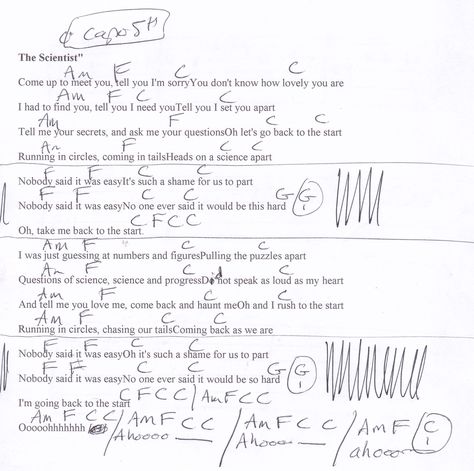 ¢ Capo 5#
The Scientist"
Am F C C
Come up to meet you, tell you I'm sorryYou don't know how lovely you are
Am F C C
I had to find you, tell you I need youTell you I set you apart
Am F C C
Tell me your secrets, and ask me your questionsOh let's go back to the start
Am F C C
Running in circles, coming in tailsHeads on a science apart
F F C C
Nobody said it was easyIt's such a shame for us to part
F F C C G G
Nobody said it was easyNo one ever said it would be this hard 1
C F C C
Oh, take me back to the start
Am F C C
I was just guessing at numbers and figuresPulling the puzzles apart
Am F C C
Questions of science, science and progressDid not speak as loud as my heart
Am F C C
And tell me you love me, come back and haunt meOh and I rush to the start
Am F C C
Running in circles, chasing our tailsComing back as we are
F F C C
Nobody said it was easyOh it's such a shame for us to part
F F C C G G
Nobody said it was easyNo one ever said it would be so hard 1
C F C C / Am F C C
I'm going back to the start
Am F C C / Am F C C / Am F C C / Am F C
Ooooohhhhhh Ahoooo Ahoooo ahoooo 1